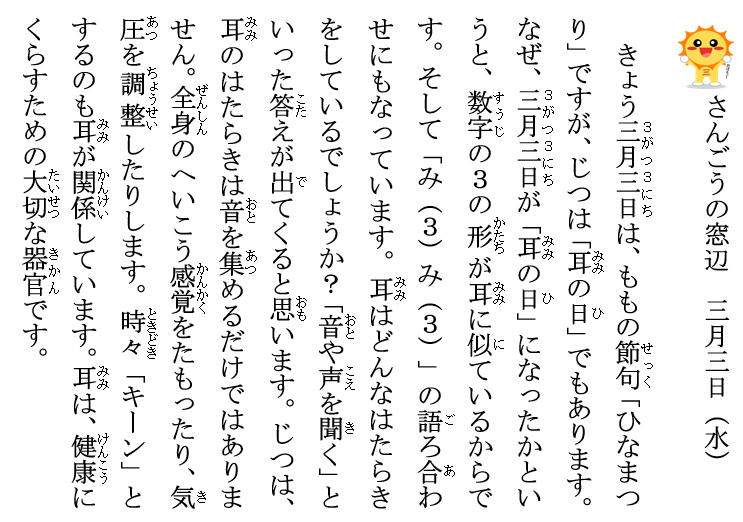 さんごうの窓辺　三月三日（水）
きょう三月三日は、ももの節句「ひなまつ
り」ですが、じつは「耳の日」でもあります。
なぜ、三月三日が「耳の日」になったかとい
うと、数字の３の形が耳に似ているからで
す。そして「み（３）み（３）」の語ろ合わ
せにもなっています。耳はどんなはたらき
をしているでしょうか？「音や声を聞く」と
いった答えが出てくると思います。じつは、
耳のはたらきは音を集めるだけではありま
せん。全身のへいこう感覚をたもったり、気
圧を調整したりします。時々「キーン」と
するのも耳が関係しています。耳は、健康に
くらすための大切な器官です。